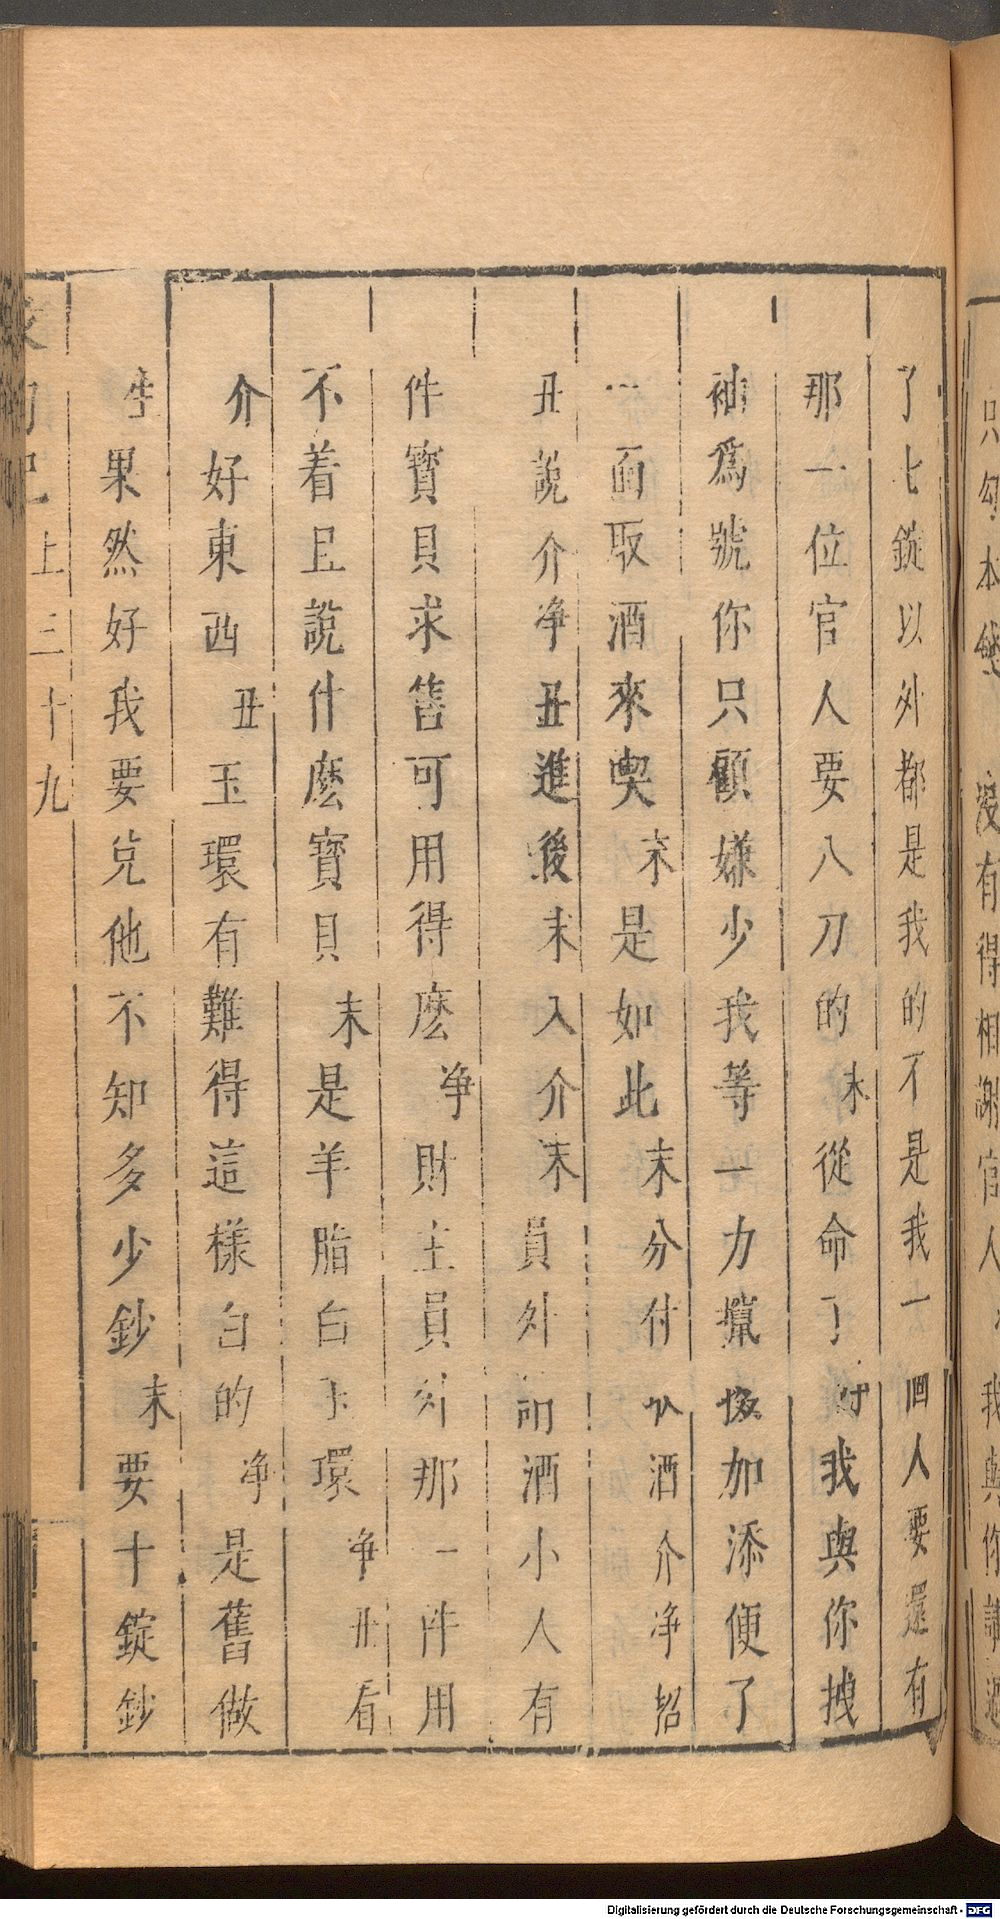 只勾本錢 沒有得相謝官人 我與你講過
了七錠以外都是我的不是我一個人要還有
那一位官人要八刀的末從命了付我與你拽
袖爲號你只顧嫌少我等一力攛掇加添便了
一面取酒來喫末是如此末分付丑酒介净招
丑說介净丑進後末入介末員外前酒小人有
件寶貝求售可用得麽净財主員外那一件用
不着且說什麽寶貝末是羊脂白玉環净丑看
介好東西丑玉環有難得這樣白的净是舊做
生果然好我要兌他不知多少鈔末要十錠鈔
上三十九
Digitalisierung gefördert durch die Deutsche Forschungsgemeinschaft - DFG